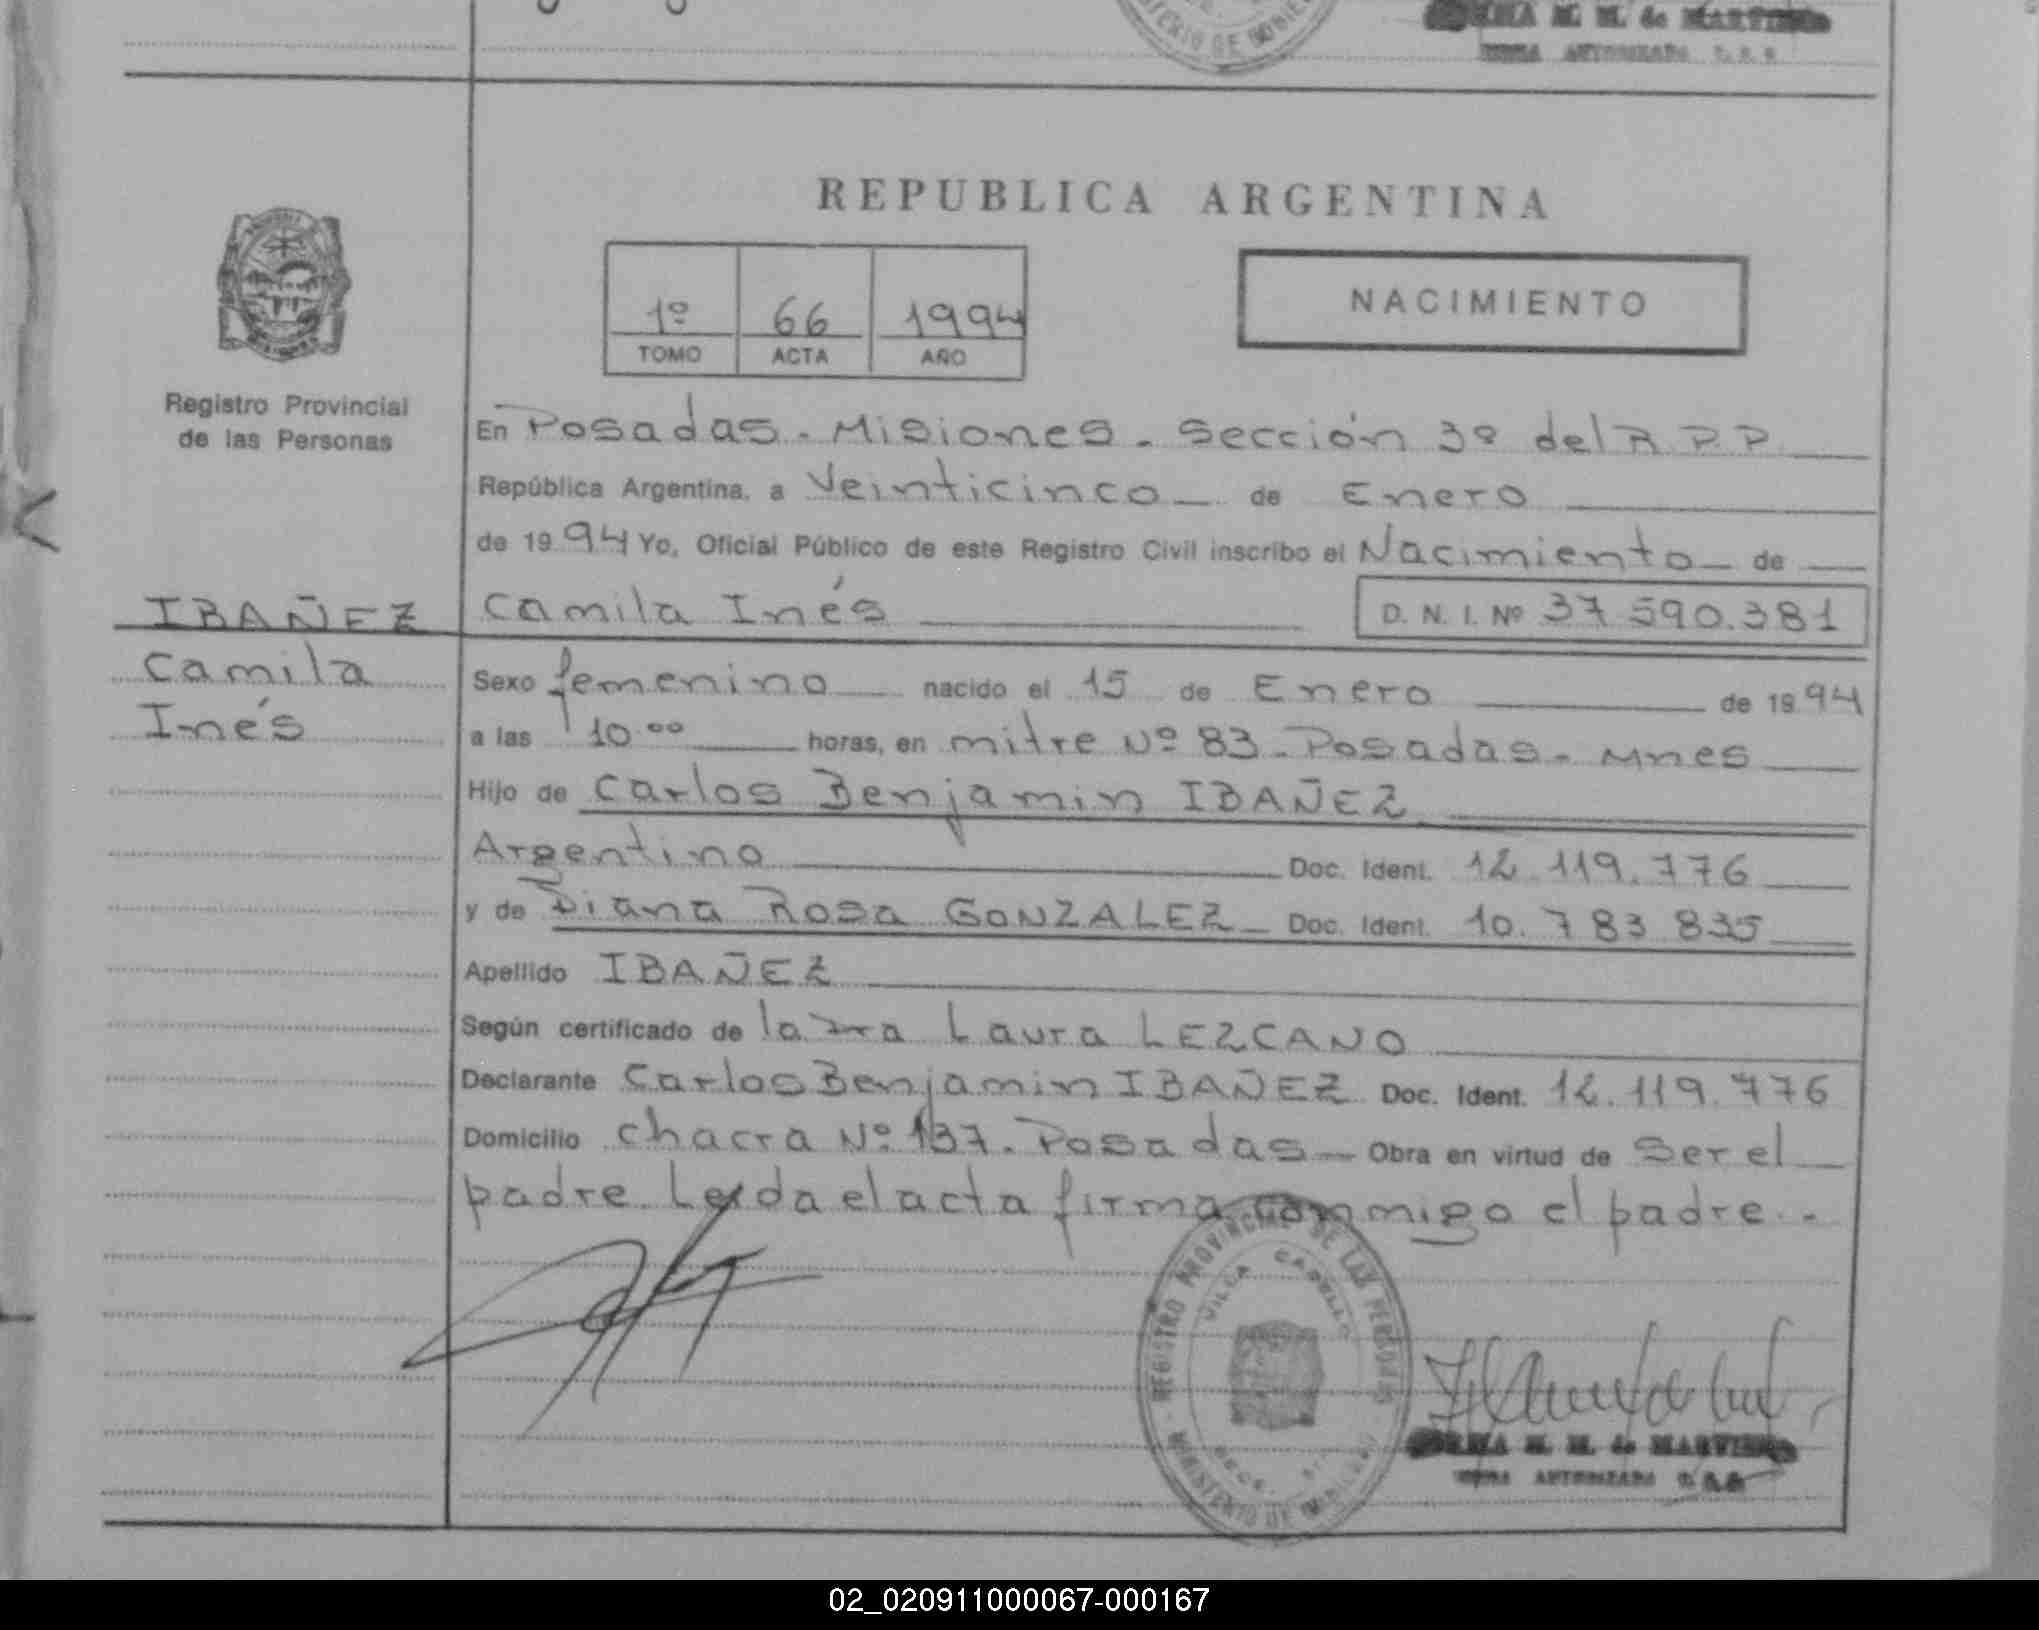 M. M. de MARTINEZ
FIRMA AUTORIZADA
REPUBLICA ARGENTINA
1º 66 1994
TOMO ACTA AÑO
NACIMIENTO
Registro Provincial
de las Personas
En Posadas - Misiones - Sección 3º del R.P.P.
República Argentina, a Veinticinco de Enero
de 1994 Yo, Oficial Público de este Registro Civil inscribo el Nacimiento de
IBAÑEZ
Camila
Inés
Camila Inés D. N. I. Nº 37.590.381
Sexo femenino nacido el 15 de Enero de 1994
a las 10.00 horas, en mitre Nº 83 - Posadas - Mnes
Hijo de Carlos Benjamin IBAÑEZ
Argentino Doc. Ident. 12.119.776
y de Diana Rosa GONZALEZ Doc. Ident. 10.783.835
Apellido IBAÑEZ
Según certificado de la Dra Laura LEZCANO
Declarante Carlos Benjamin IBAÑEZ Doc. Ident. 12.119.776
Domicilio Chacra Nº 137. Posadas Obra en virtud de Ser el
padre. Leida el acta firma conmigo el padre.-
REGISTRO PROVINCIAL DE LAS PERSONAS
VILLA CABELLO
MINISTERIO DE GOBIERNO
M. M. de MARTINEZ
FIRMA AUTORIZADA
02_020911000067-000167